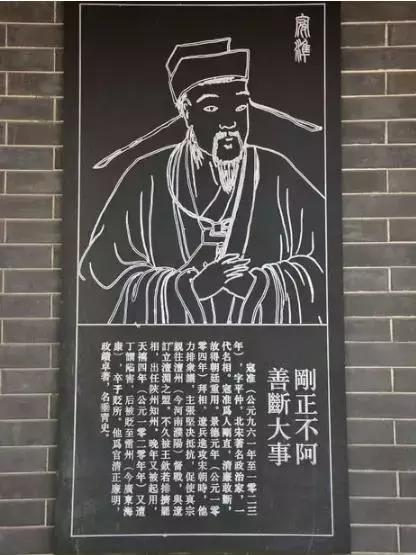 寇準
剛正不阿
善斷大事
寇准（公元九六一年至一〇二三
年），字平仲，北宋著名政治家，一
代名相。寇准爲人剛直，清廉敢斷，
故得朝廷重用。景德元年（公元一零
零四年）拜相，遼兵進攻宋朝時，他
力排衆議，主張堅决抵抗，促使真宗
親往澶州（今河南濮陽）督戰，與遼
訂立澶淵之盟。不久被王欽若排擠罷
相，出任陝州知州，晚年又被起用，
天禧四年（公元一〇二零年）又遭
丁謂陷害，后被貶至雷州（今廣東海
康），卒于貶所。他爲官清正廉明，
政績卓著，名垂青史。